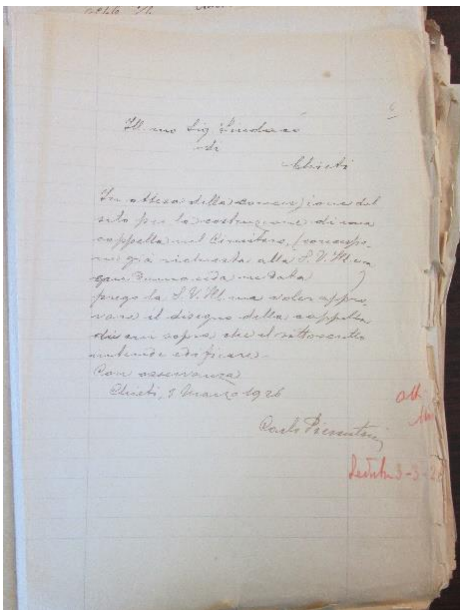 Ill.mo Sig. Sindaco
di
Chieti
In attesa della concessione del
sito per la costruzione di una
cappella nel Cimitero,
già richiesta alla S.V. Ill.ma
prego la S.V. Ill.ma voler appro
vare il disegno della cappella
di cui copia che il sottoscritto
intende edificare.
Con osservanza
Chieti, 3 Marzo 1926
Carlo
3-3-